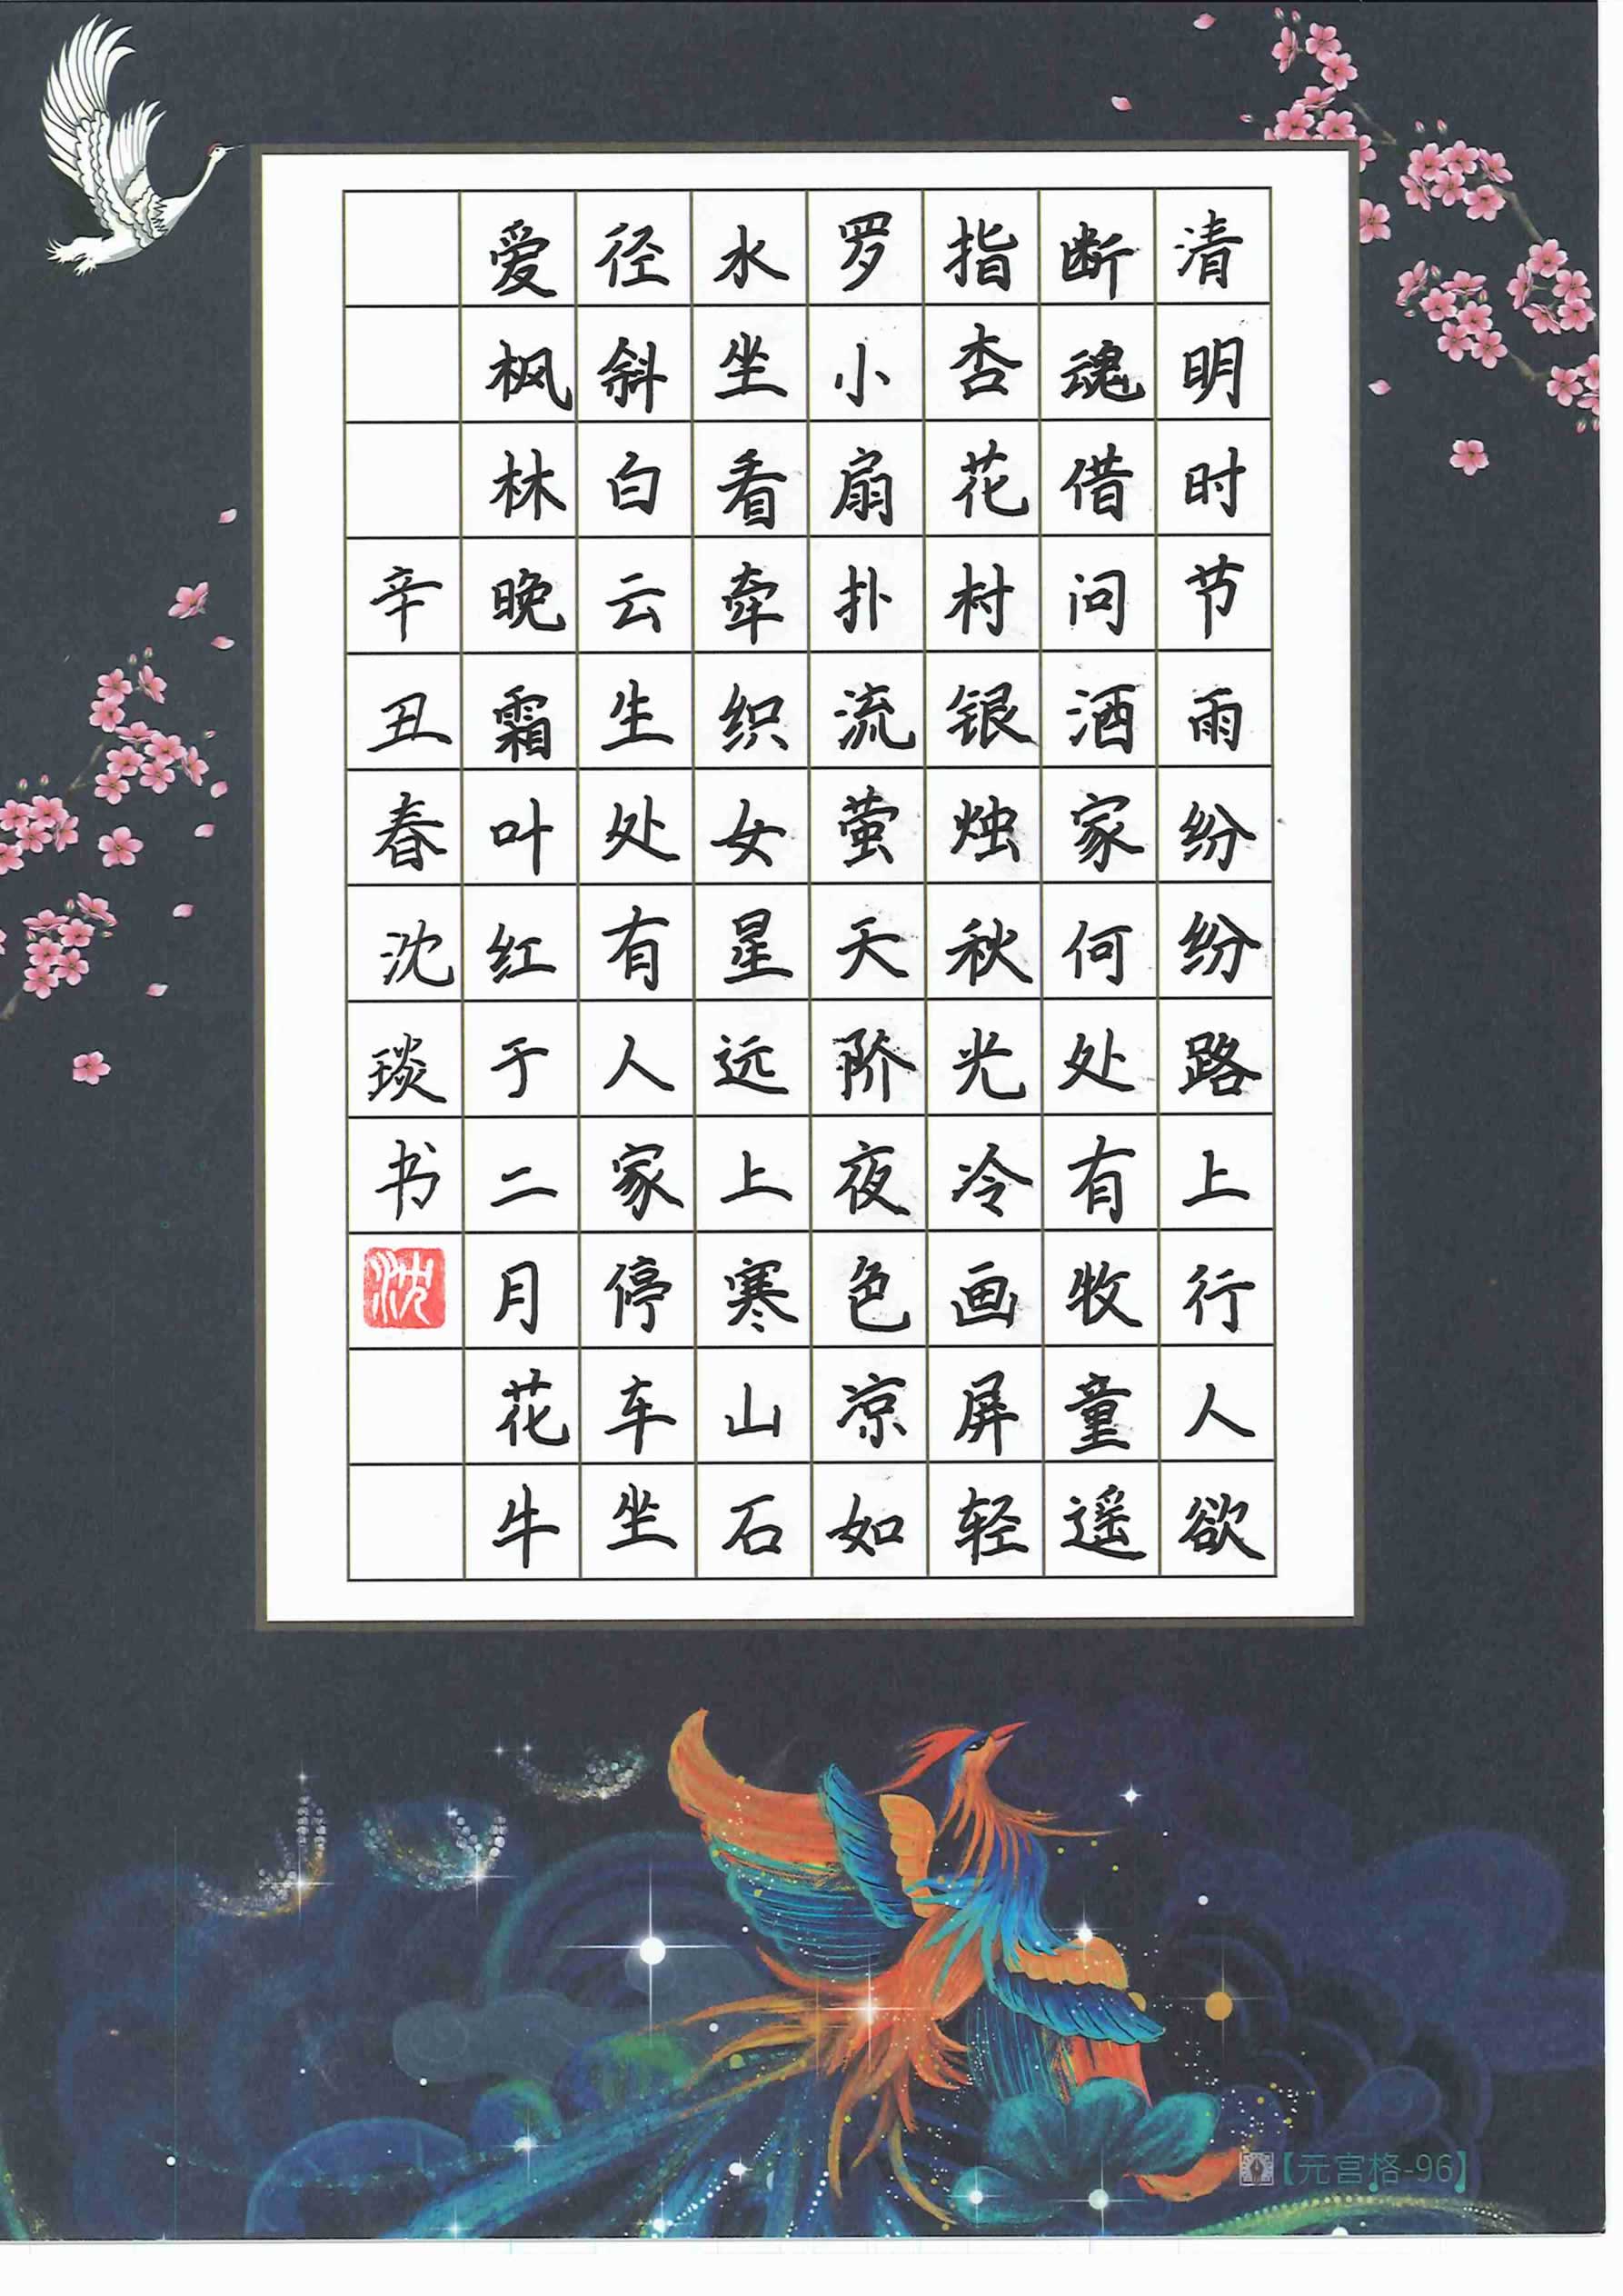 清明时节雨纷纷路上行人欲
断魂借问酒家何处有牧童遥
指杏花村银烛秋光冷画屏轻
罗小扇扑流萤天阶夜色凉如
水坐看牵织女星远上寒山石
径斜白云生处有人家停车坐
爱枫林晚霜叶红于二月花牛
辛丑春沈琰书
沈
【元宫格-96】